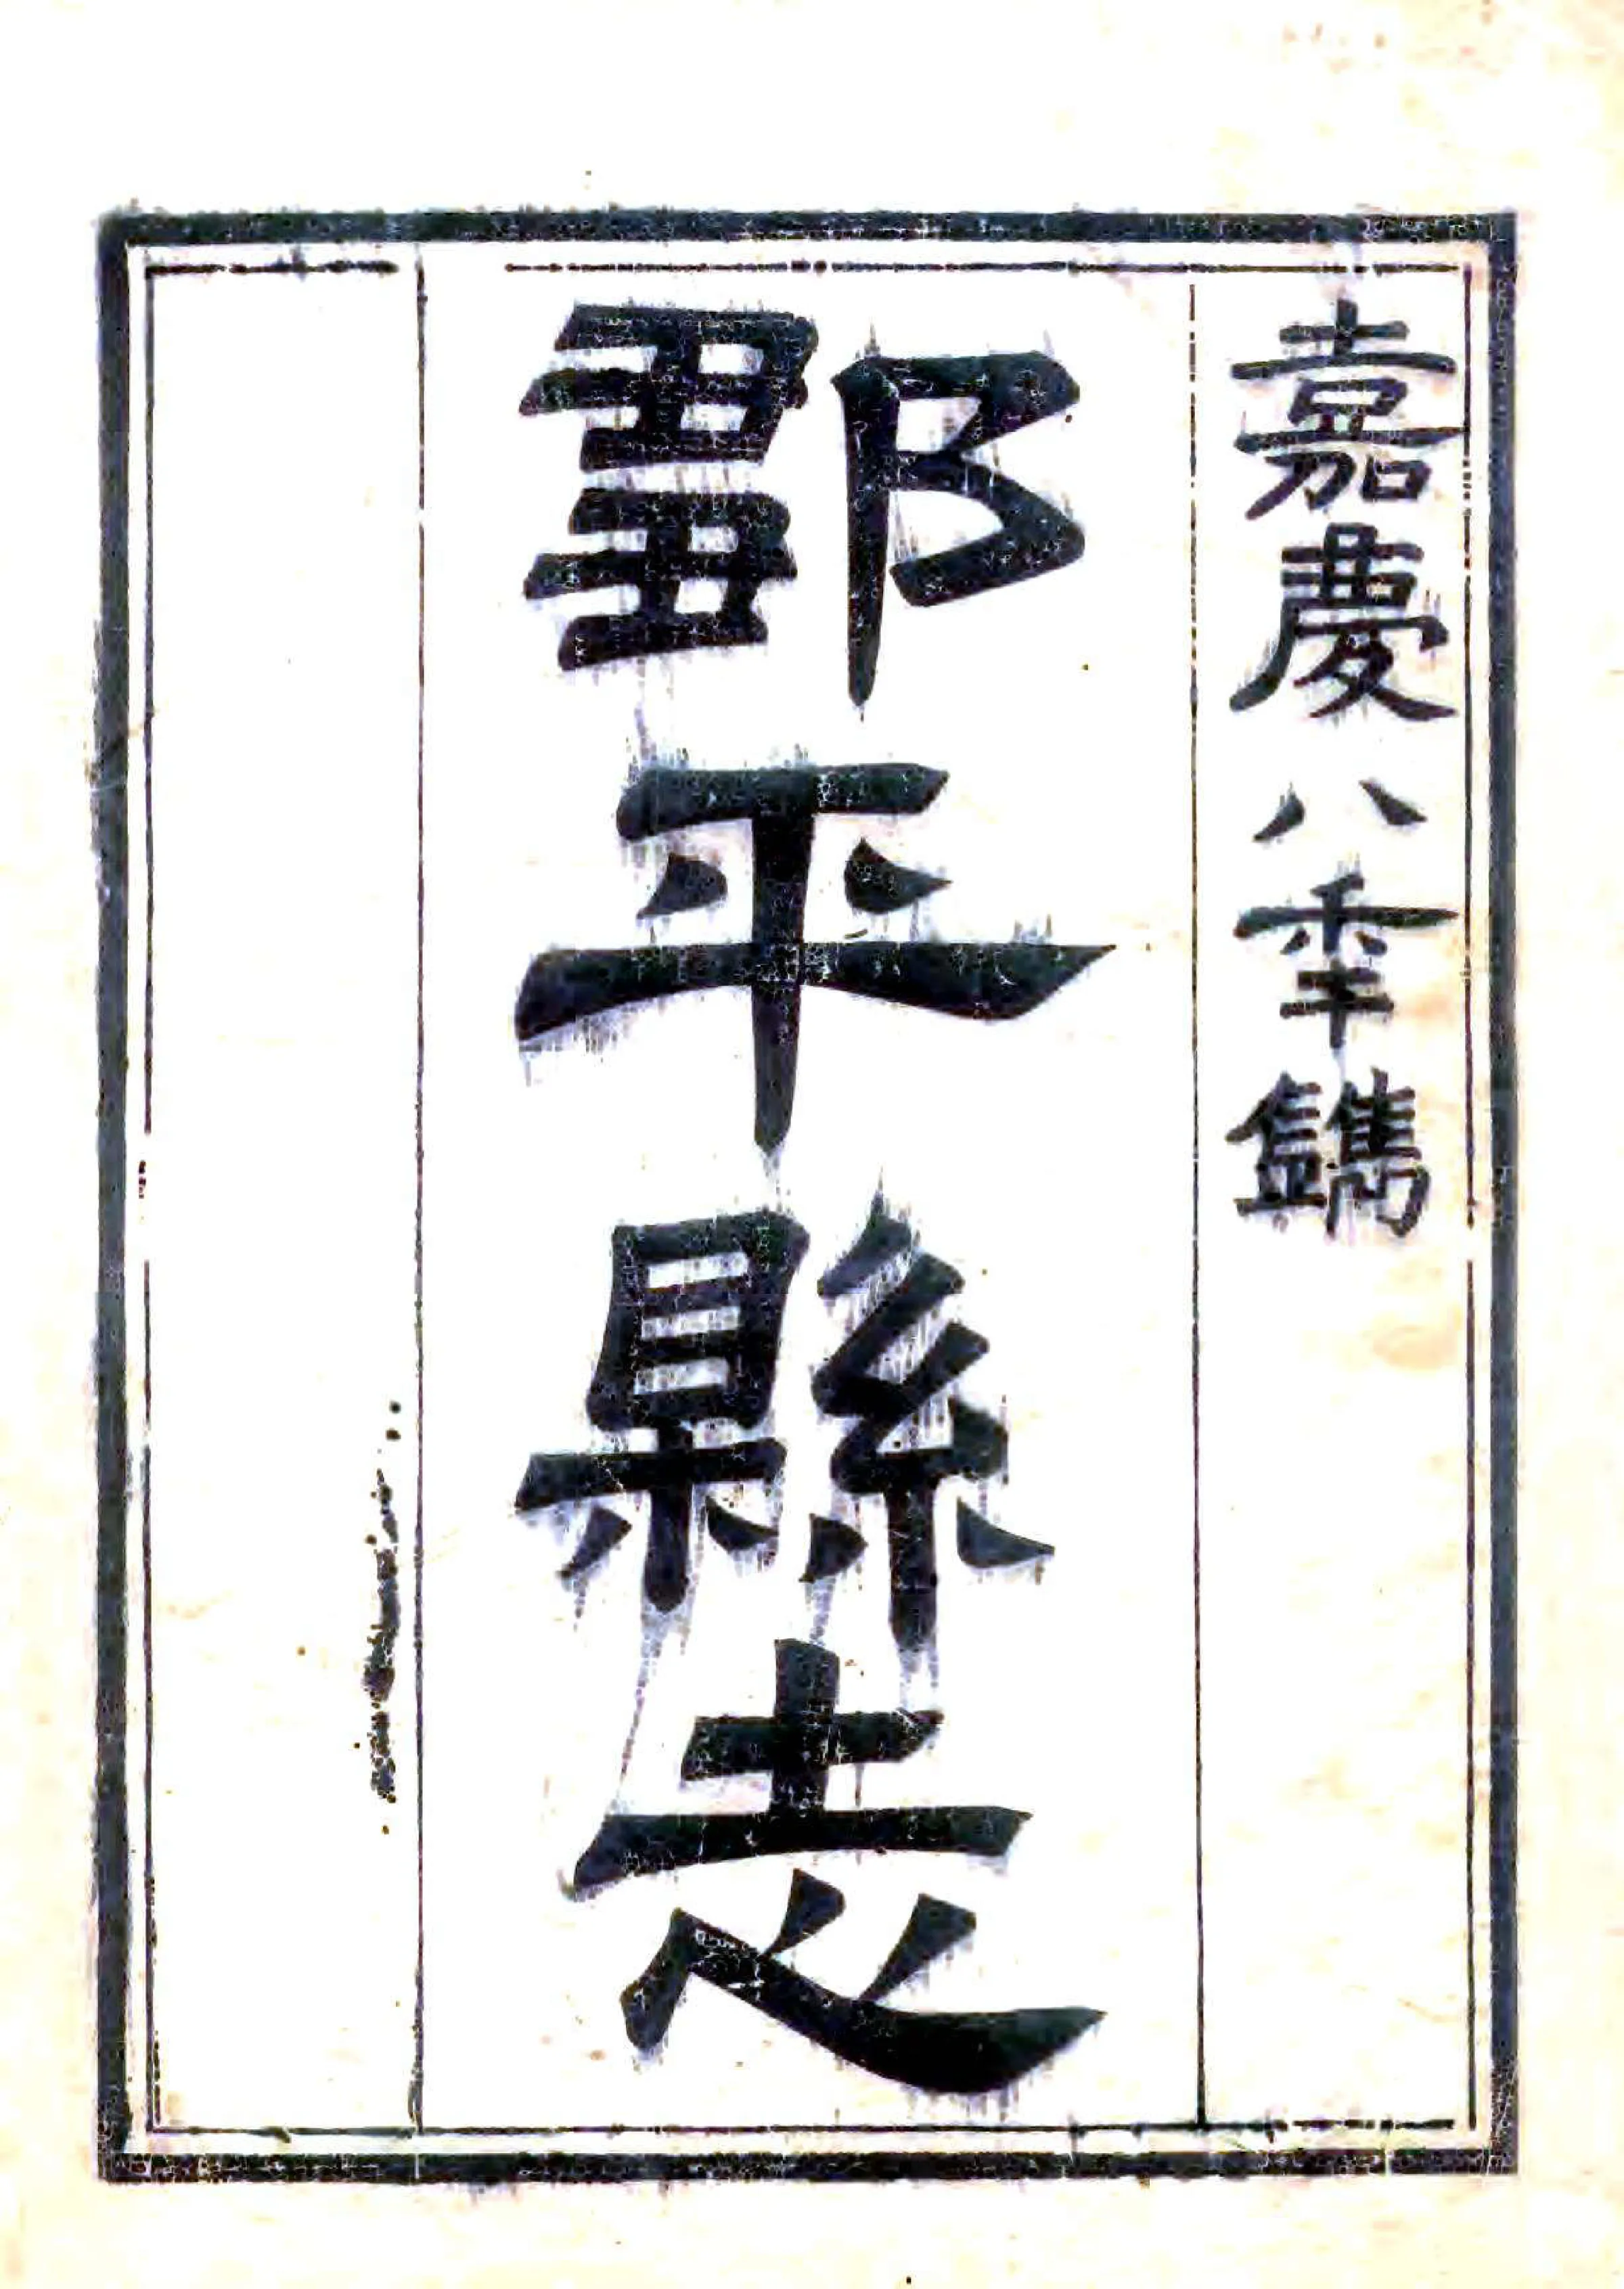 嘉慶八秊鐫
鄒平縣志